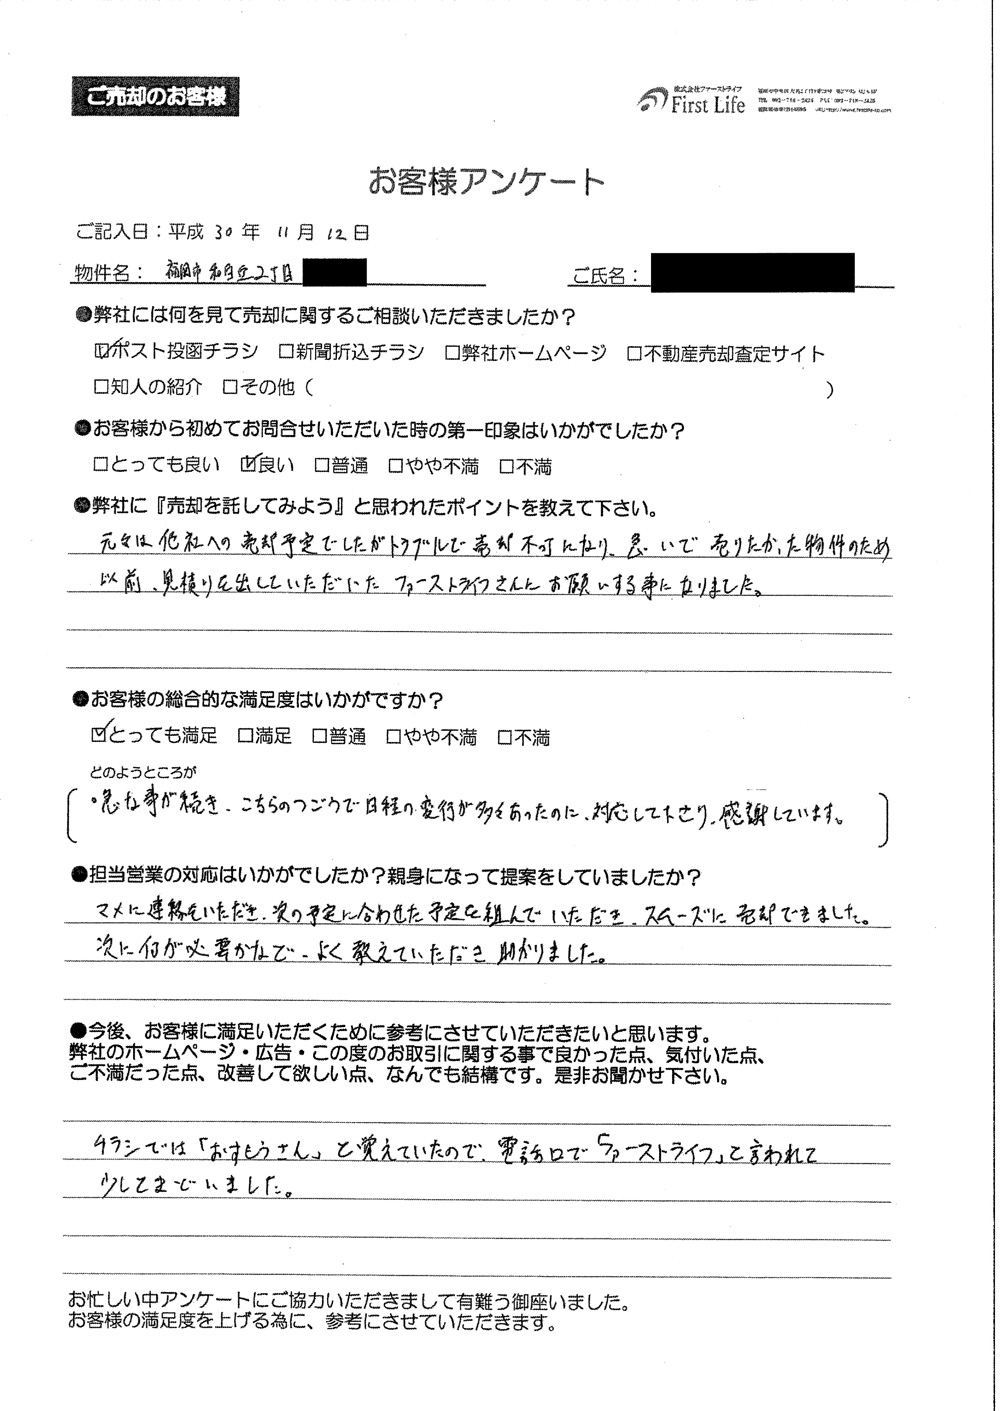 ご売却のお客様
株式会社ファーストライフ
First Life
お客様アンケート
ご記入日：平成 30 年 11 月 12 日
物件名： 福岡市 和白丘2丁目
ご氏名：
●弊社には何を見て売却に関するご相談いただきましたか？
☑ポスト投函チラシ □新聞折込チラシ □弊社ホームページ □不動産売却査定サイト
□知人の紹介 □その他（ ）
●お客様から初めてお問合せいただいた時の第一印象はいかがでしたか？
□とっても良い ☑良い □普通 □やや不満 □不満
●弊社に『売却を託してみよう』と思われたポイントを教えて下さい。
元々は他社への売却予定でしたがトラブルで売却不可になり、急いで売りたかった物件のため
以前、見積りを出していただいたファーストライフさんにお願いする事になりました。
●お客様の総合的な満足度はいかがですか？
☑とっても満足 □満足 □普通 □やや不満 □不満
どのようところが
・急な事が続き、こちらのつごうで日程の変行が多々あったのに、対応して下さり、感謝しています。
●担当営業の対応はいかがでしたか？親身になって提案をしていましたか？
マメに連絡をいただき、次の予定に合わせた予定を組んでいただき、スムーズに売却できました。
次に何が必要かなど、よく教えていただき助かりました。
●今後、お客様に満足いただくために参考にさせていただきたいと思います。
弊社のホームページ・広告・この度のお取引に関する事で良かった点、気付いた点、
ご不満だった点、改善して欲しい点、なんでも結構です。是非お聞かせ下さい。
チラシでは「おすもうさん」と覚えていたので、電話口で「ファーストライフ」と言われて
少しとまどいました。
お忙しい中アンケートにご協力いただきまして有難う御座いました。
お客様の満足度を上げる為に、参考にさせていただきます。